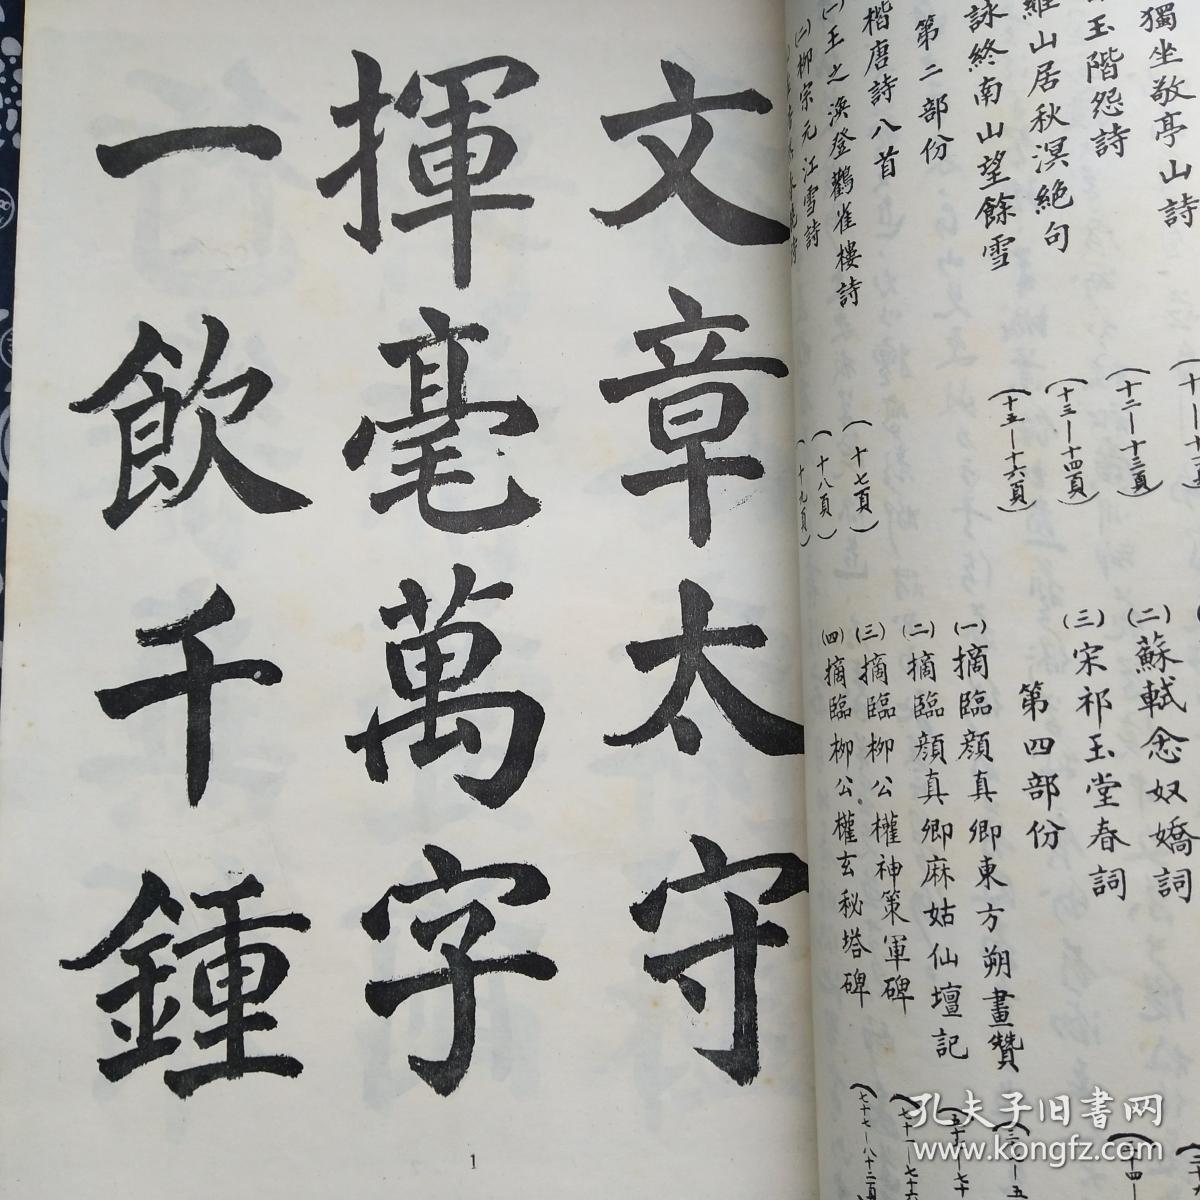 獨坐敬亭山詩
玉階怨詩
山居秋溟絶句
詠終南山望餘雪
第二部份
楷唐詩八首
(一)王之渙登鸛雀樓詩
(二)柳宗元江雪詩
(十二—十三頁)
(十三—十四頁)
(十五—十六頁)
(十七頁)
(十八頁)
(十九頁)
(二)蘇軾念奴嬌詞
(三)宋祁玉堂春詞
第四部份
(一)摘臨顏真卿東方朔畫贊
(二)摘臨顏真卿麻姑仙壇記
(三)摘臨柳公權神策軍碑
(四)摘臨柳公權玄秘塔碑
(七十七—八十二頁
文章太守
揮毫萬字
一飲千鍾
1
孔夫子旧书网
www.kongfz.com